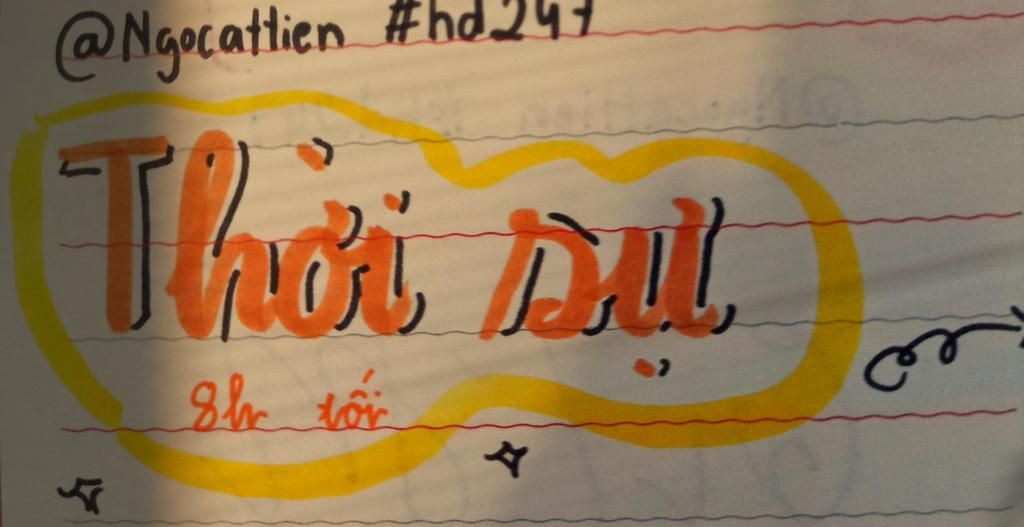 @Ngocattien #hd247
Thời sự
8h tối